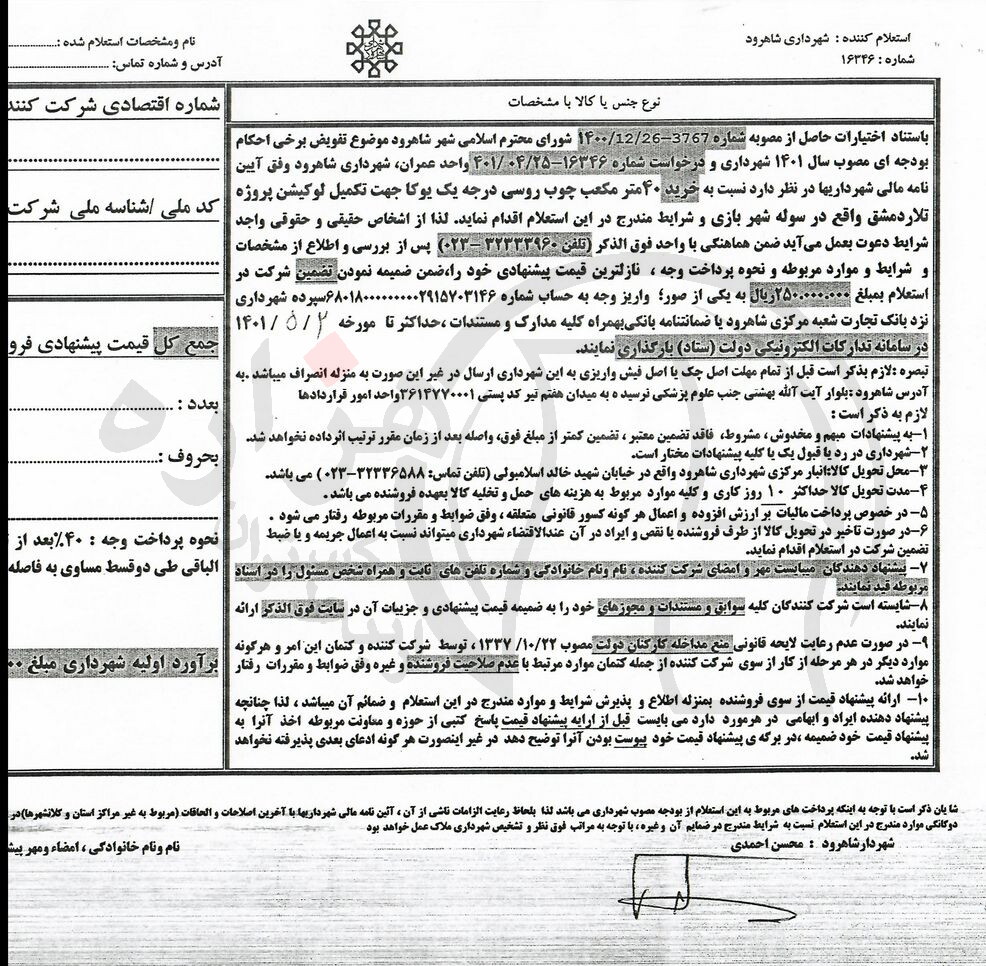 استعلام کننده : شهرداری شاهرود
شماره : ۱۶۳۴۶
نام ومشخصات استعلام شده :
آدرس و شماره تماس:
نوع جنس یا کالا با مشخصات
باستناد اختیارات حاصل از مصوبه شماره 3767-1400/12/26 شورای محترم اسلامی شهر شاهرود موضوع تفویض برخی احکام
بودجه ای مصوب سال ۱۴۰۱ شهرداری و درخواست شماره ۱۶۳۴۶-۴۰۱/۰۴/۲۵ واحد عمران، شهرداری شاهرود وفق آیین
نامه مالی شهرداریها در نظر دارد نسبت به خرید ۴۰متر مکعب چوب روسی درجه یک یوکا جهت تکمیل لوکیشن پروژه
تلاردمشق واقع در سوله شهر بازی و شرایط مندرج در این استعلام اقدام نماید. لذا از اشخاص حقیقی و حقوقی واجد
شرایط دعوت بعمل می‌آید ضمن هماهنگی با واحد فوق الذکر (تلفن ۳۲۳۳۳۹۶۰-۰۲۳) پس از بررسی و اطلاع از مشخصات
و شرایط و موارد مربوطه و نحوه پرداخت وجه ، نازلترین قیمت پیشنهادی خود را،ضمن ضمیمه نمودن تضمین شرکت در
استعلام بمبلغ ۲۵۰.۰۰۰.۰۰۰ریال به یکی از صور؛ واریز وجه به حساب شماره ۶۸۰۱۸۰۰۰۰۰۰۰۰۰۲۹۱۵۷۰۳۱۴۶سپرده شهرداری
نزد بانک تجارت شعبه مرکزی شاهرود یا ضمانتنامه بانکی‌بهمراه کلیه مدارک و مستندات ،حداکثر تا مورخه ۱۴۰۱/۵/۲
در سامانه تدارکات الکترونیکی دولت (ستاد) بارگذاری نمایند.
تبصره :لازم بذکر است قبل از تمام مهلت اصل چک یا اصل فیش واریزی به این شهرداری ارسال در غیر این صورت به منزله انصراف میباشد .به
آدرس شاهرود :بلوار آیت الله بهشتی جنب علوم پزشکی نرسید ه به میدان هفتم تیر کد پستی ۳۶۱۴۷۷۰۰۰۱واحد امور قراردادها
لازم به ذکر است :
۱-به پیشنهادات مبهم و مخدوش ، مشروط، فاقد تضمین معتبر ، تضمین کمتر از مبلغ فوق، واصله بعد از زمان مقرر ترتیب اثرداده نخواهد شد.
۲-شهرداری در رد یا قبول یک یا کلیه پیشنهادات مختار است.
۳-محل تحویل کالا:انبار مرکزی شهرداری شاهرود واقع در خیابان شهید خالد اسلامبولی (تلفن تماس: ۳۲۳۳۶۵۸۸-۰۲۳ ) می باشد.
۴-مدت تحویل کالا حداکثر ۱۰ روز کاری و کلیه موارد مربوط به هزینه های حمل و تخلیه کالا بعهده فروشنده می باشد .
۵- در خصوص پرداخت مالیات بر ارزش افزوده و اعمال هر گونه کسور قانونی متعلقه ، وفق ضوابط و مقررات مربوطه رفتار می شود .
۶-در صورت تاخیر در تحویل کالا از طرف فروشنده یا نقص و ایراد در آن عندالاقتضاء شهرداری میتواند نسبت به اعمال جریمه و یا ضبط
تضمین شرکت در استعلام اقدام نماید.
۷- پیشنهاد دهندگان میبایست مهر و امضای شرکت کننده ، نام ونام خانوادگی و شماره تلفن های ثابت و همراه شخص مسئول را در اسناد
مربوطه قید نمایند
۸-شایسته است شرکت کنندگان کلیه سوابق و مستندات و مجوزهای خود را به ضمیمه قیمت پیشنهادی و جزییات آن در سایت فوق الذکر ارائه
نمایند.
۹- در صورت عدم رعایت لایحه قانونی منع مداخله کارکنان دولت مصوب ۱۳۳۷/۱۰/۲۲ ، توسط شرکت کننده و کتمان این امر و هرگونه
موارد دیگر در هر مرحله از کار از سوی شرکت کننده از جمله کتمان موارد مرتبط با عدم صلاحیت فروشنده و غیره وفق ضوابط و مقررات رفتار
خواهد شد.
۱۰- ارائه پیشنهاد قیمت از سوی فروشنده بمنزله اطلاع و پذیرش شرایط و موارد مندرج در این استعلام و ضمائم آن میباشد ، لذا چنانچه
پیشنهاد دهنده ایراد و ابهامی در هرمورد دارد می بایست قبل از ارایه پیشنهاد قیمت پاسخ کتبی از حوزه و معاونت مربوطه اخذ آنرا به
پیشنهاد قیمت خود ضمیمه ،در برگه ی پیشنهاد قیمت خود پیوست بودن آنرا توضیح دهد در غیر اینصورت هر گونه ادعای بعدی پذیرفته نخواهد
شد.
شماره اقتصادی شرکت کنند
کد ملی /شناسه ملی شرکت
جمع کل قیمت پیشنهادی فرو
بعدد :
بحروف :
نحوه پرداخت وجه : ۴۰٪بعد از
الباقی طی دوقسط مساوی به فاصله
برآورد اولیه شهرداری مبلغ ۰۰
هزاره
شا یان ذکر است با توجه به اینکه پرداخت های مربوط به این استعلام از بودجه مصوب شهرداری می باشد لذا بلحاظ رعایت الزامات ناشی از آن ، آئین نامه مالی شهرداریها با آخرین اصلاحات و الحاقات (مربوط به غیر مراکز استان و کلانشهرها)در
دوگانگی موارد مندرج در این استعلام نسبت به شرایط مندرج در ضمایم آن و غیره ، با توجه به مراتب فوق نظر و تشخیص شهرداری ملاک عمل خواهد بود
شهردارشاهرود : محسن احمدی
نام ونام خانوادگی ، امضاء ومهر پیش